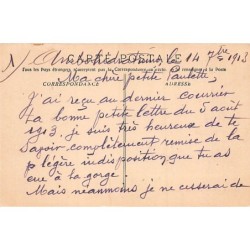 CARTE POSTALE
le 14 7bre 1913
Tous les Pays étrangers n'acceptent pas la Correspondance au recto.
CORRESPONDANCE
ADRESSE
Ma chère petite Paulette,
J'ai reçu au dernier courrier
ta bonne petite lettre du 5 août
1913. je suis très heureux de te
savoir complètement remise de la
légère indisposition que tu as
eue à la gorge.
Mais néanmoins je ne cesserai de